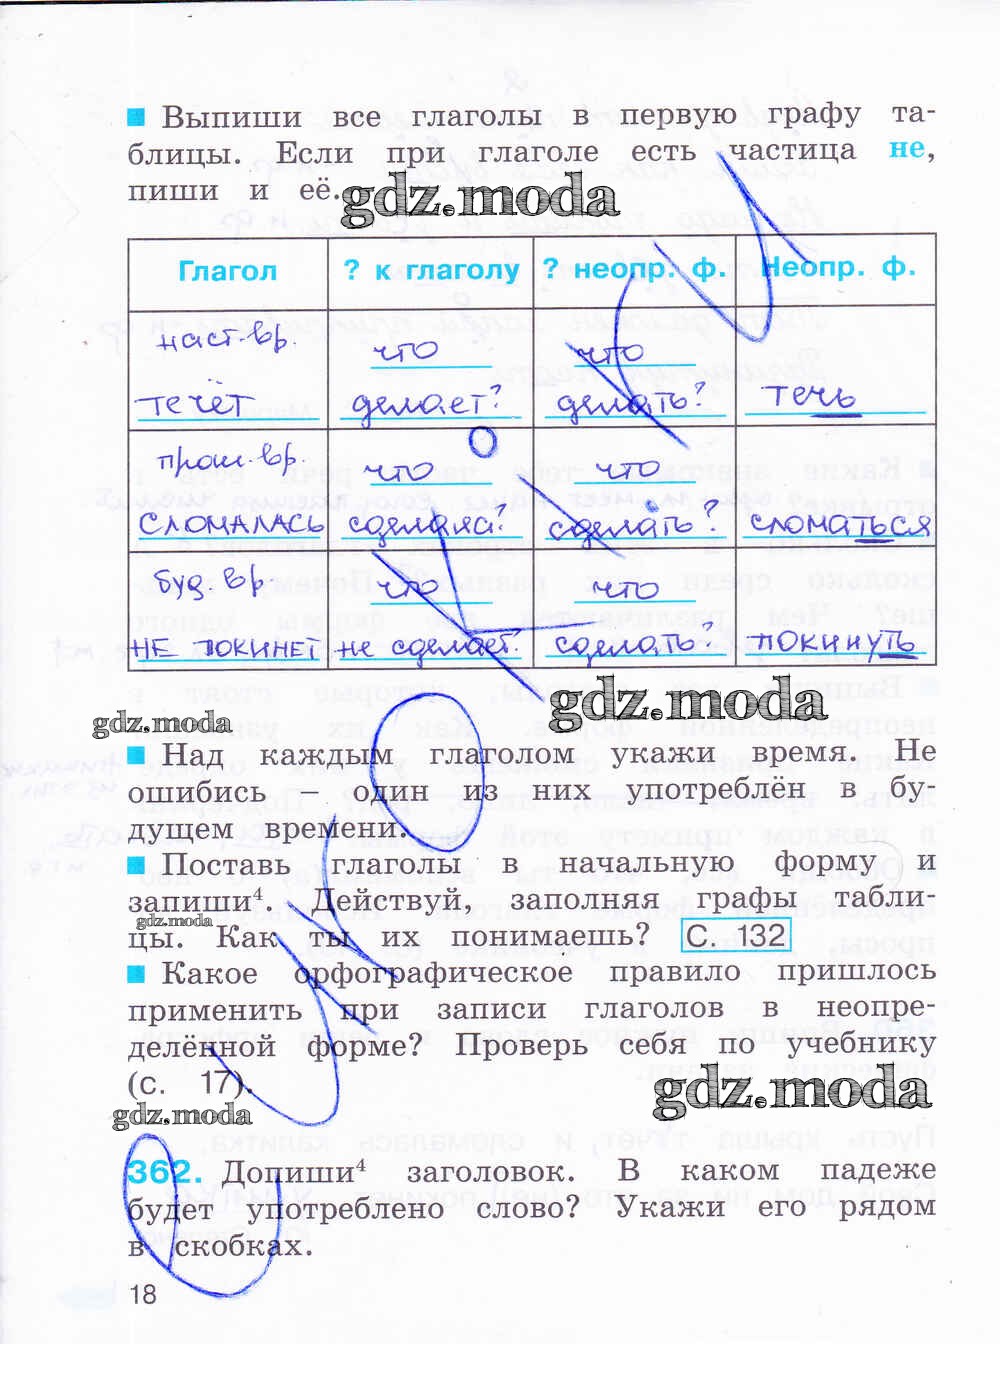 ■ Выпиши все глаголы в первую графу та-
блицы. Если при глаголе есть частица не,
пиши и её.
gdz.moda
Глагол ? к глаголу ? неопр. ф. Неопр. ф.
наст. вр. что что
течёт делает? делать? течь
прош. вр. что что
сломалась сделала? сделать? сломаться
буд. вр. что что
не покинет не сделает? сделать? покинуть
gdz.moda
gdz.moda
■ Над каждым глаголом укажи время. Не
ошибись – один из них употреблён в бу-
дущем времени.
■ Поставь глаголы в начальную форму и
запиши⁴. Действуй, заполняя графы табли-
gdz.moda
цы. Как ты их понимаешь? С. 132
■ Какое орфографическое правило пришлось
применить при записи глаголов в неопре-
делённой форме? Проверь себя по учебнику
(с. 17).
gdz.moda
gdz.moda
362. Допиши⁴ заголовок. В каком падеже
будет употреблено слово? Укажи его рядом
в скобках.
18